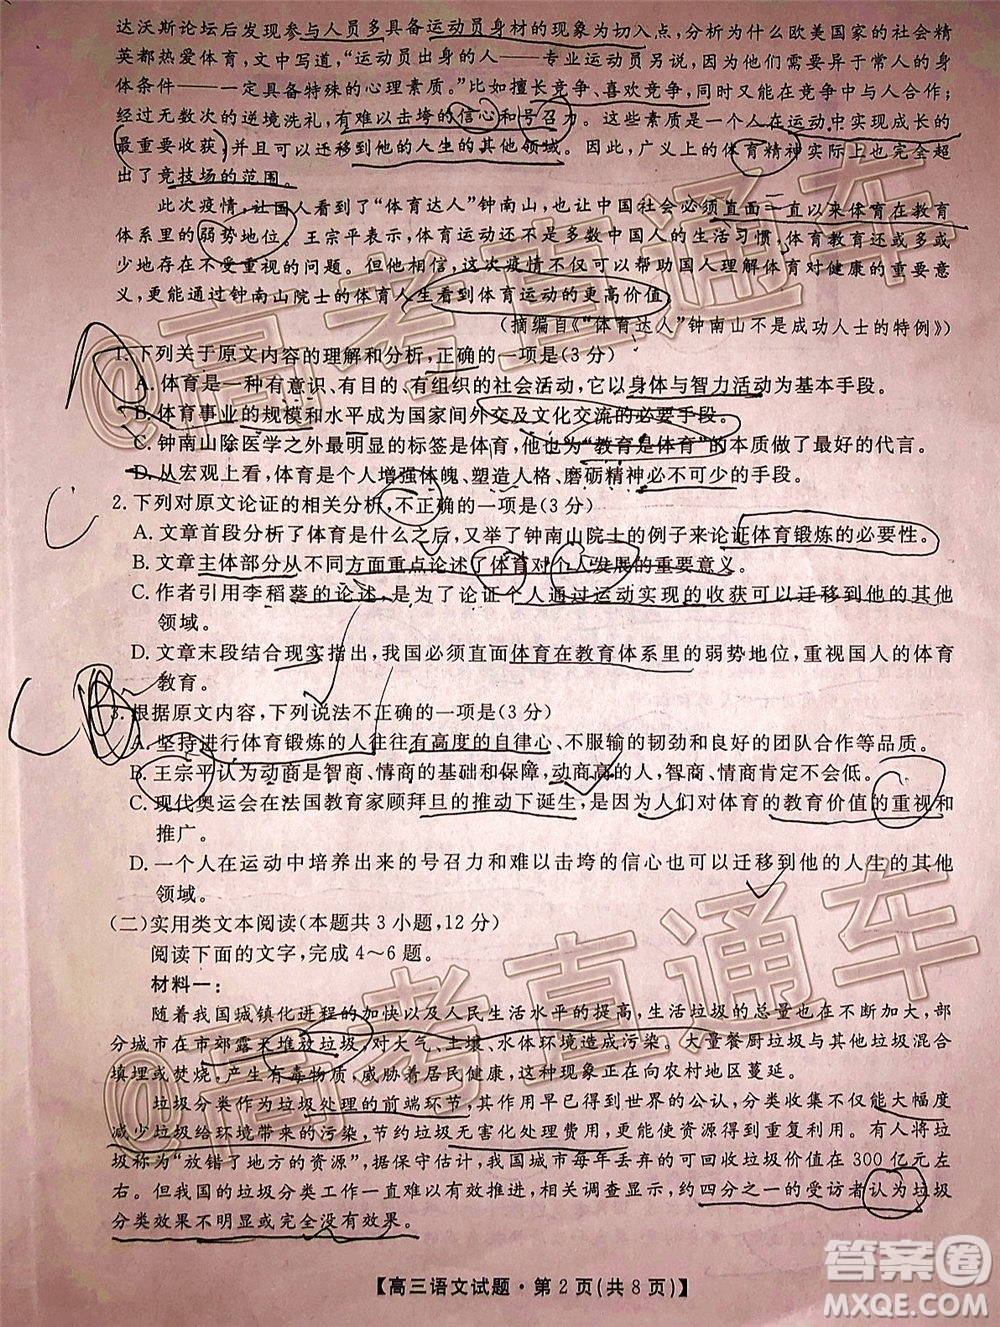 达沃斯论坛后发现参与人员多具备运动员身材的现象为切入点,分析为什么欧美国家的社会精
英都热爱体育,文中写道,“运动员出身的人——专业运动员另说,具有异于常人的身
体条件——一定具备特殊的心理素质。”比如擅长竞争、喜欢竞争,同时又能在竞争中与人合作;
经过无数次的逆境洗礼,有难以击垮的信心和号召力。这些素质是一个人在运动中实现成长的
最重要收获,并可以迁移到他的人生的其他领域。因此,广义上的体育精神实际上也完全超
出了竞技场的范围。
此次疫情,让国人看到了“体育达人”钟南山,也让中国社会必须直面一直以来体育在教育
体系里的弱势地位。王宗平表示,体育运动还不是多数中国人的生活习惯,体育教育还或多或
少地存在不受重视的问题。但他相信,这次疫情不仅可以帮助国人理解体育对健康的重要意
义,更能通过钟南山院士的体育人生看到体育运动的更高价值。
(摘编自《“体育达人”钟南山不是成功人士的特例》)
1. 下列关于原文内容的理解和分析,正确的一项是(3分)
A. 体育是一种有意识、有目的、有组织的社会活动,它以身体与智力活动为基本手段。
B. 体育事业的规模和水平成为国家间外交及文化交流的必要手段。
C. 钟南山除医学之外最明显的标签是体育,他为“教育是体育”的本质做了最好的代言。
D. 从宏观上看,体育是个人增强体魄、塑造人格、磨砺精神必不可少的手段。
2. 下列对原文论证的相关分析,不正确的一项是(3分)
A. 文章首段分析了体育是什么之后,又举了钟南山院士的例子来论证体育锻炼的必要性。
B. 文章主体部分从不同方面重点论述了体育对个人发展的重要意义。
C. 作者引用李稻葵的论述,是为了论证个人通过运动实现的收获可以迁移到他的其他
领域。
D. 文章末段结合现实指出,我国必须直面体育在教育体系里的弱势地位,重视国人的体育
教育。
3. 根据原文内容,下列说法不正确的一项是(3分)
A. 坚持进行体育锻炼的人往往有高度的自律心、不服输的韧劲和良好的团队合作等品质。
B. 王宗平认为动商是智商、情商的基础和保障,动商高的人,智商、情商肯定不会低。
C. 现代奥运会在法国教育家顾拜旦的推动下诞生,是因为人们对体育的教育价值的重视和
推广。
D. 一个人在运动中培养出来的号召力和难以击垮的信心可以迁移到他的人生的其他
领域。
(二)实用类文本阅读(本题共3小题,12分)
阅读下面的文字,完成4~6题。
材料一:
随着我国城镇化进程的加快以及人民生活水平的提高,生活垃圾的总量也在增加,部
分城市在市郊露天堆放垃圾,对大气、土壤、水体环境造成污染。大量餐厨垃圾与垃圾混合
填埋或焚烧,产生有毒物质,威胁着居民健康,这种现象正在向农村地区蔓延。
垃圾分类作为垃圾处理的前端环节,其作用早已得到世界的公认,分类收集不仅能大幅度
减少垃圾给环境带来的污染,节约垃圾无害化处理费用,更能使资源得到重复利用。有人将垃
圾称为“放错了地方的资源”,据保守估计,我国城市每年丢弃的可回收垃圾价值在300亿元左
右。但我国的垃圾分类工作一直难以有效推进,相关调查显示,约四分之一的受访者认为垃圾
分类效果不明显或完全没有效果。
【高三语文试题·第2页(共8页)】
@高考直通车
@高考直通车
答案圈
MXQE.COM